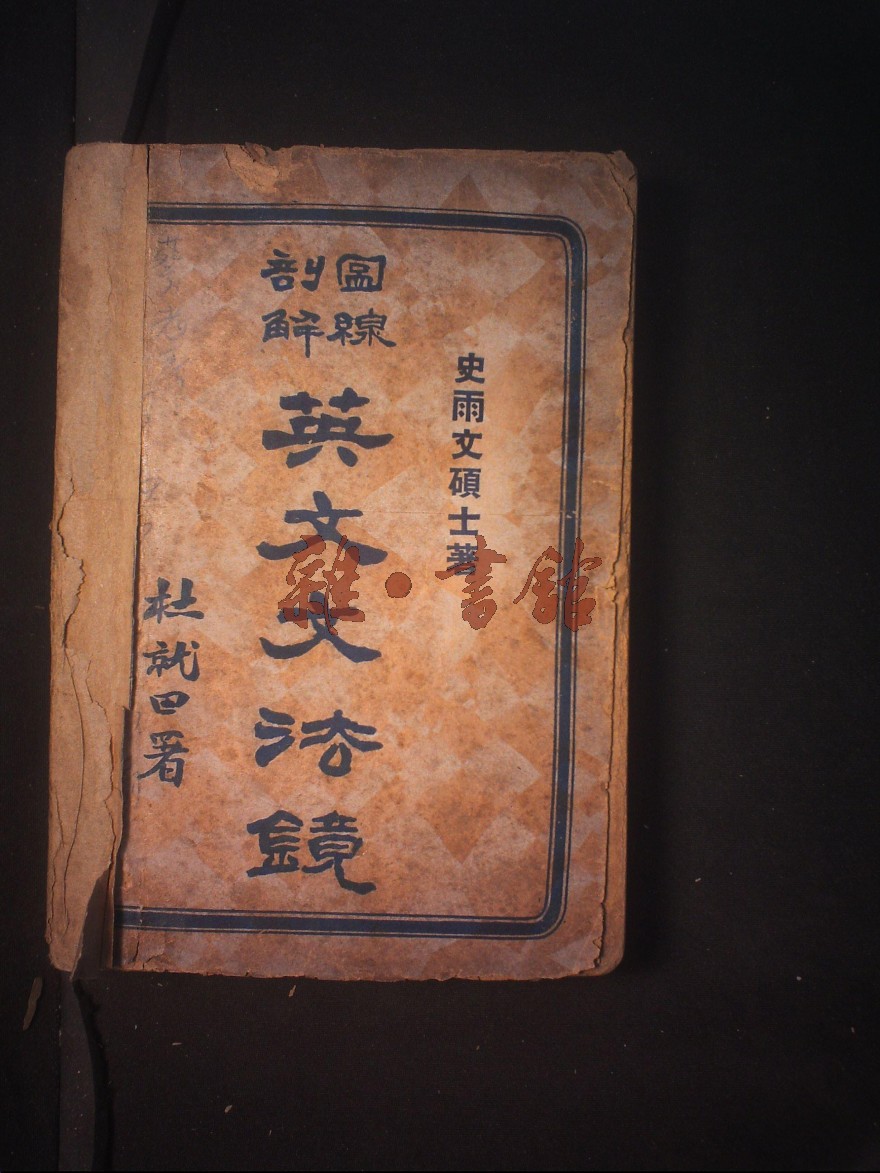 史雨文碩士著
圖線
剖解
英文文法鏡
杜就田署
雜·書館